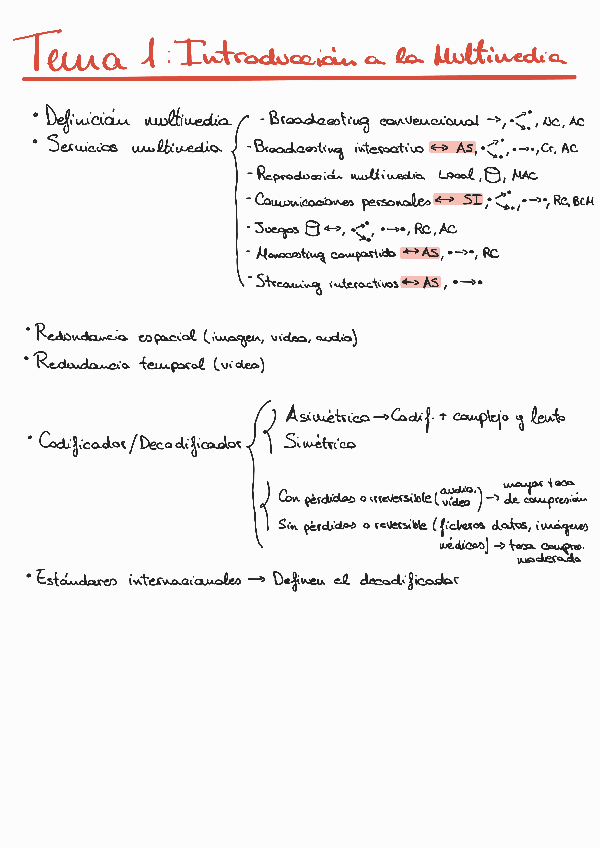 Tema 1: Introducción a la Multimedia
• Definición multimedia
• Servicios multimedia
- Broadcasting convencional →, NC, AC
- Broadcasting interactivo ↔ AS, •→•, Cr, AC
- Reproducción multimedia Local, MAC
- Comunicaciones personales ↔ SI, •→•, RC, BCM
- Juegos ↔, •→•, RC, AC
- Monocasting compartido ↔ AS, •→•, RC
- Streaming interactivos ↔ AS, •→•
• Redundancia espacial (imagen, video, audio)
• Redundancia temporal (video)
• Codificador/Decodificador
Asimétrico → Codif. + complejo y lento
Simétrico
Con pérdidas o irreversible (audio, vídeo) → mayor tasa de compresión
Sin pérdidas o reversible (ficheros datos, imágenes
médicas) → tasa compre. moderada
• Estándares internacionales → Definen el decodificador